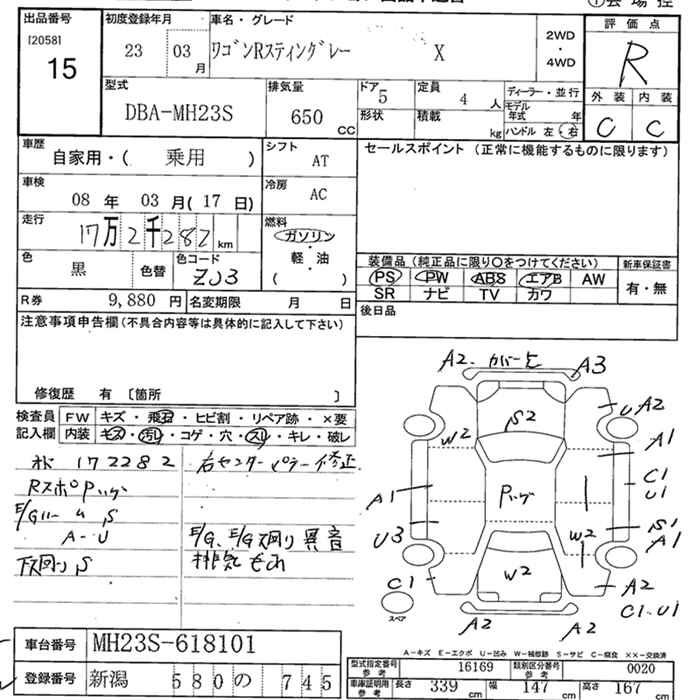 出品番号 初度登録年月 車名・グレード 評価点
[2058]
15
23 03 月 ワゴンRスティングレー X 2WD・4WD R
型式 排気量 ドア 定員 ディーラー・並行 外装 内装
DBA-MH23S 650 CC 5 4 人 モデル年式 年 C C
形状 積載 kg ハンドル 左・右
車歴 シフト セールスポイント (正常に機能するものに限ります)
自家用・( 乗用 ) AT
車検 冷房
08 年 03 月( 17 日) AC
走行 燃料
17万2千282 km ガソリン・軽・油 ( )
色 色コード 装備品 (純正品に限り○をつけてください) 新車保証書
黒 色替 ZJ3 PS PW ABS エアB AW 有・無
SR ナビ TV カワ
R券 9,880 円 名変期限 月 日 後日品
注意事項申告欄(不具合内容等は具体的に記入して下さい)
修復歴 有 〔箇所 〕
検査員記入欄 FW キズ・飛石・ヒビ割・リペア跡・×要
内装 キズ・汚れ・コゲ・穴・スレ・キレ・破レ
172282 右センターピラー修正
RスポPハゲ
A-U E/G、E/G下回り異音
下回りS 排気もれ
A2 カバーヒ A3
UA2
W2 S2 A1
C1
U1
A1 Pハゲ
U3 W2 S1
A1
C1 W2 A2
C1・U1
スペア A2 A2
A-キズ E-エクボ U-凹み W-補修跡 S-サビ C-腐食 ××-交換済
車台番号 MH23S-618101
型式指定番号 参考 16169 類別区分番号 参考 0020
登録番号 新潟 580 の 745
車庫証明用 参考 長さ 339 cm 幅 147 cm 高さ 167 cm